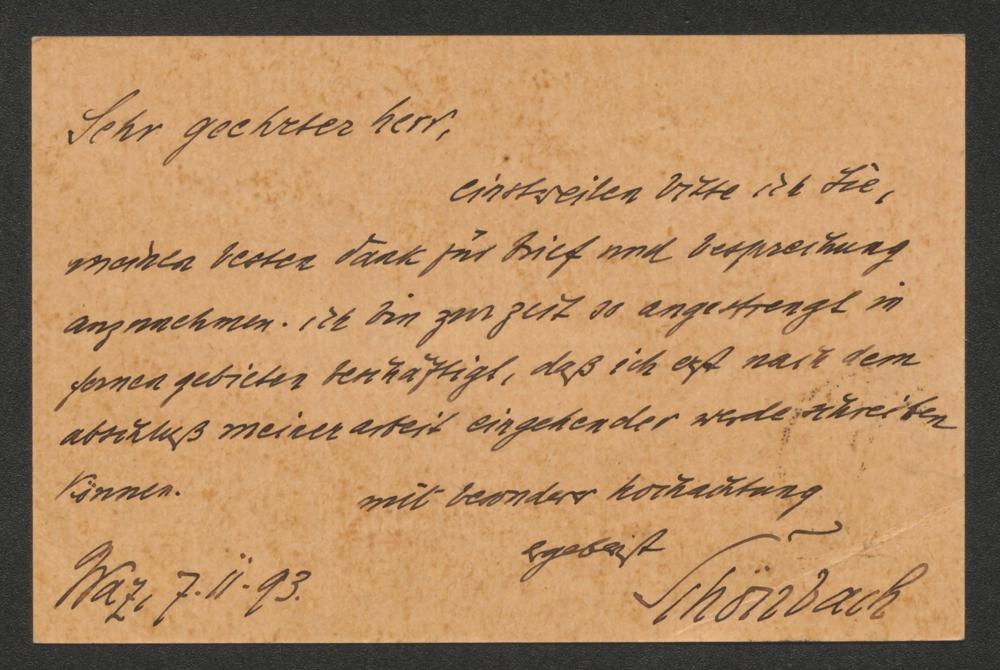 Sehr geehrter herr,
einstweilen bitte ich Sie,
meinen besten dank für brief und besprechung
anzunehmen. ich bin zur zeit so angestrengt in
fernen gebieten beschäftigt, daß ich erst nach dem
abschluß meiner arbeit eingehender werde schreiben
können.
mit besondrer hochachtung
ergebenst
Graz, 7.II.93.
Schönbach